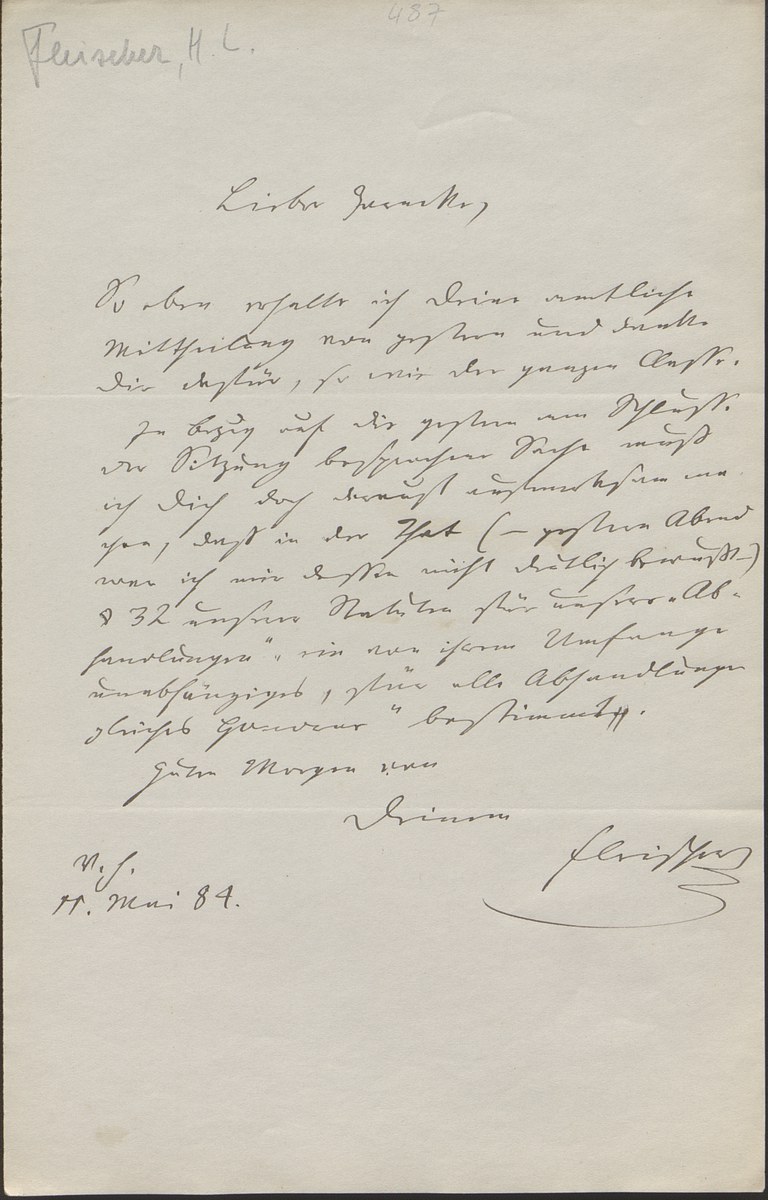 487
Fleischer, H. L.
Lieber Zarncke,
So eben erhalte ich Deine amtliche
Mittheilung von gestern und danke
Dir dafür, so wie der ganzen Classe.
In Bezug auf die gestern am Schlusse
der Sitzung besprochene Sache muß
ich Dich doch darauf aufmerksam ma
chen, daß in der That (– gestern Abend
war ich mir dessen nicht deutlich bewußt –)
§ 32 unserer Statuten für unsere „Ab-
handlungen“ „ein von ihrem Umfange
unabhängiges, für alle Abhandlungen
gleiches Honorar“ bestimmt.
Guten Morgen von
Deinem
Fleischer
V. H.
11. Mai 84.